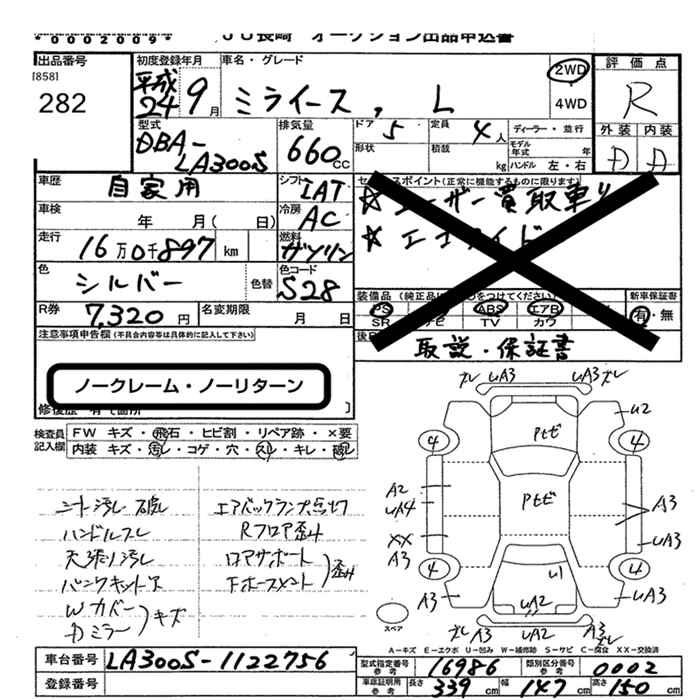 *0002009*
JU長崎 オークション出品申込書
出品番号
[858]
282
初度登録年月
平成24 9月
車名・グレード
ミライース, L
2WD
4WD
評価点
R
外装 内装
D D
型式
DBA-
LA300S
排気量
660cc
ドア 5
定員 4人
ディーラー・並行
形状
積載 kg
モデル年式 年
ハンドル 左・右
車歴
自家用
シフト
IAT
セールスポイント(正常に機能するものに限ります)
☆ユーザー買取車
☆エコアイドル
車検
年 月( 日)
冷房
AC
走行
16万0千897 km
燃料
ガソリン
色
シルバー
色替
色コード
S28
装備品 (純正品は○をつけてください)
PS ABS エアB
SR ナビ TV カワ
新車保証書
有・無
R券
7,320円
名変期限
月 日
取説・保証書
注意事項申告欄(不具合内容等は具体的に記入して下さい)
ノークレーム・ノーリターン
修復歴 有(箇所 ]
検査員記入欄
FW キズ・飛石・ヒビ割・リペア跡・×要
内装 キズ・汚レ・コゲ・穴・スレ・キレ・破レ
ニオ汚レ破レ
ハンドルスレ
天張り汚レ
パンクキットア
Wカバー
Dミラー
キズ
エアバックランプ点灯
Rフロア歪み
ロアサポート
Fホースメント
歪み
ズレ UA3 UA3 ズレ
U2
4 4
Pセビ
A2
UA4
Pセビ
A3
XX
A3
UA3
4 4
U1
A3
UA2
UA3
ズレ A3 UA2 A3 ズレ
スペア
A－キズ E－エクボ U－凹み W－補修跡 S－サビ C－腐食 XX－交換済
車台番号
LA300S-1122756
登録番号
型式指定番号 参考
16986
類別区分番号 参考
0002
車庫証明用 参考
長さ 339cm
幅 147cm
高さ 150cm